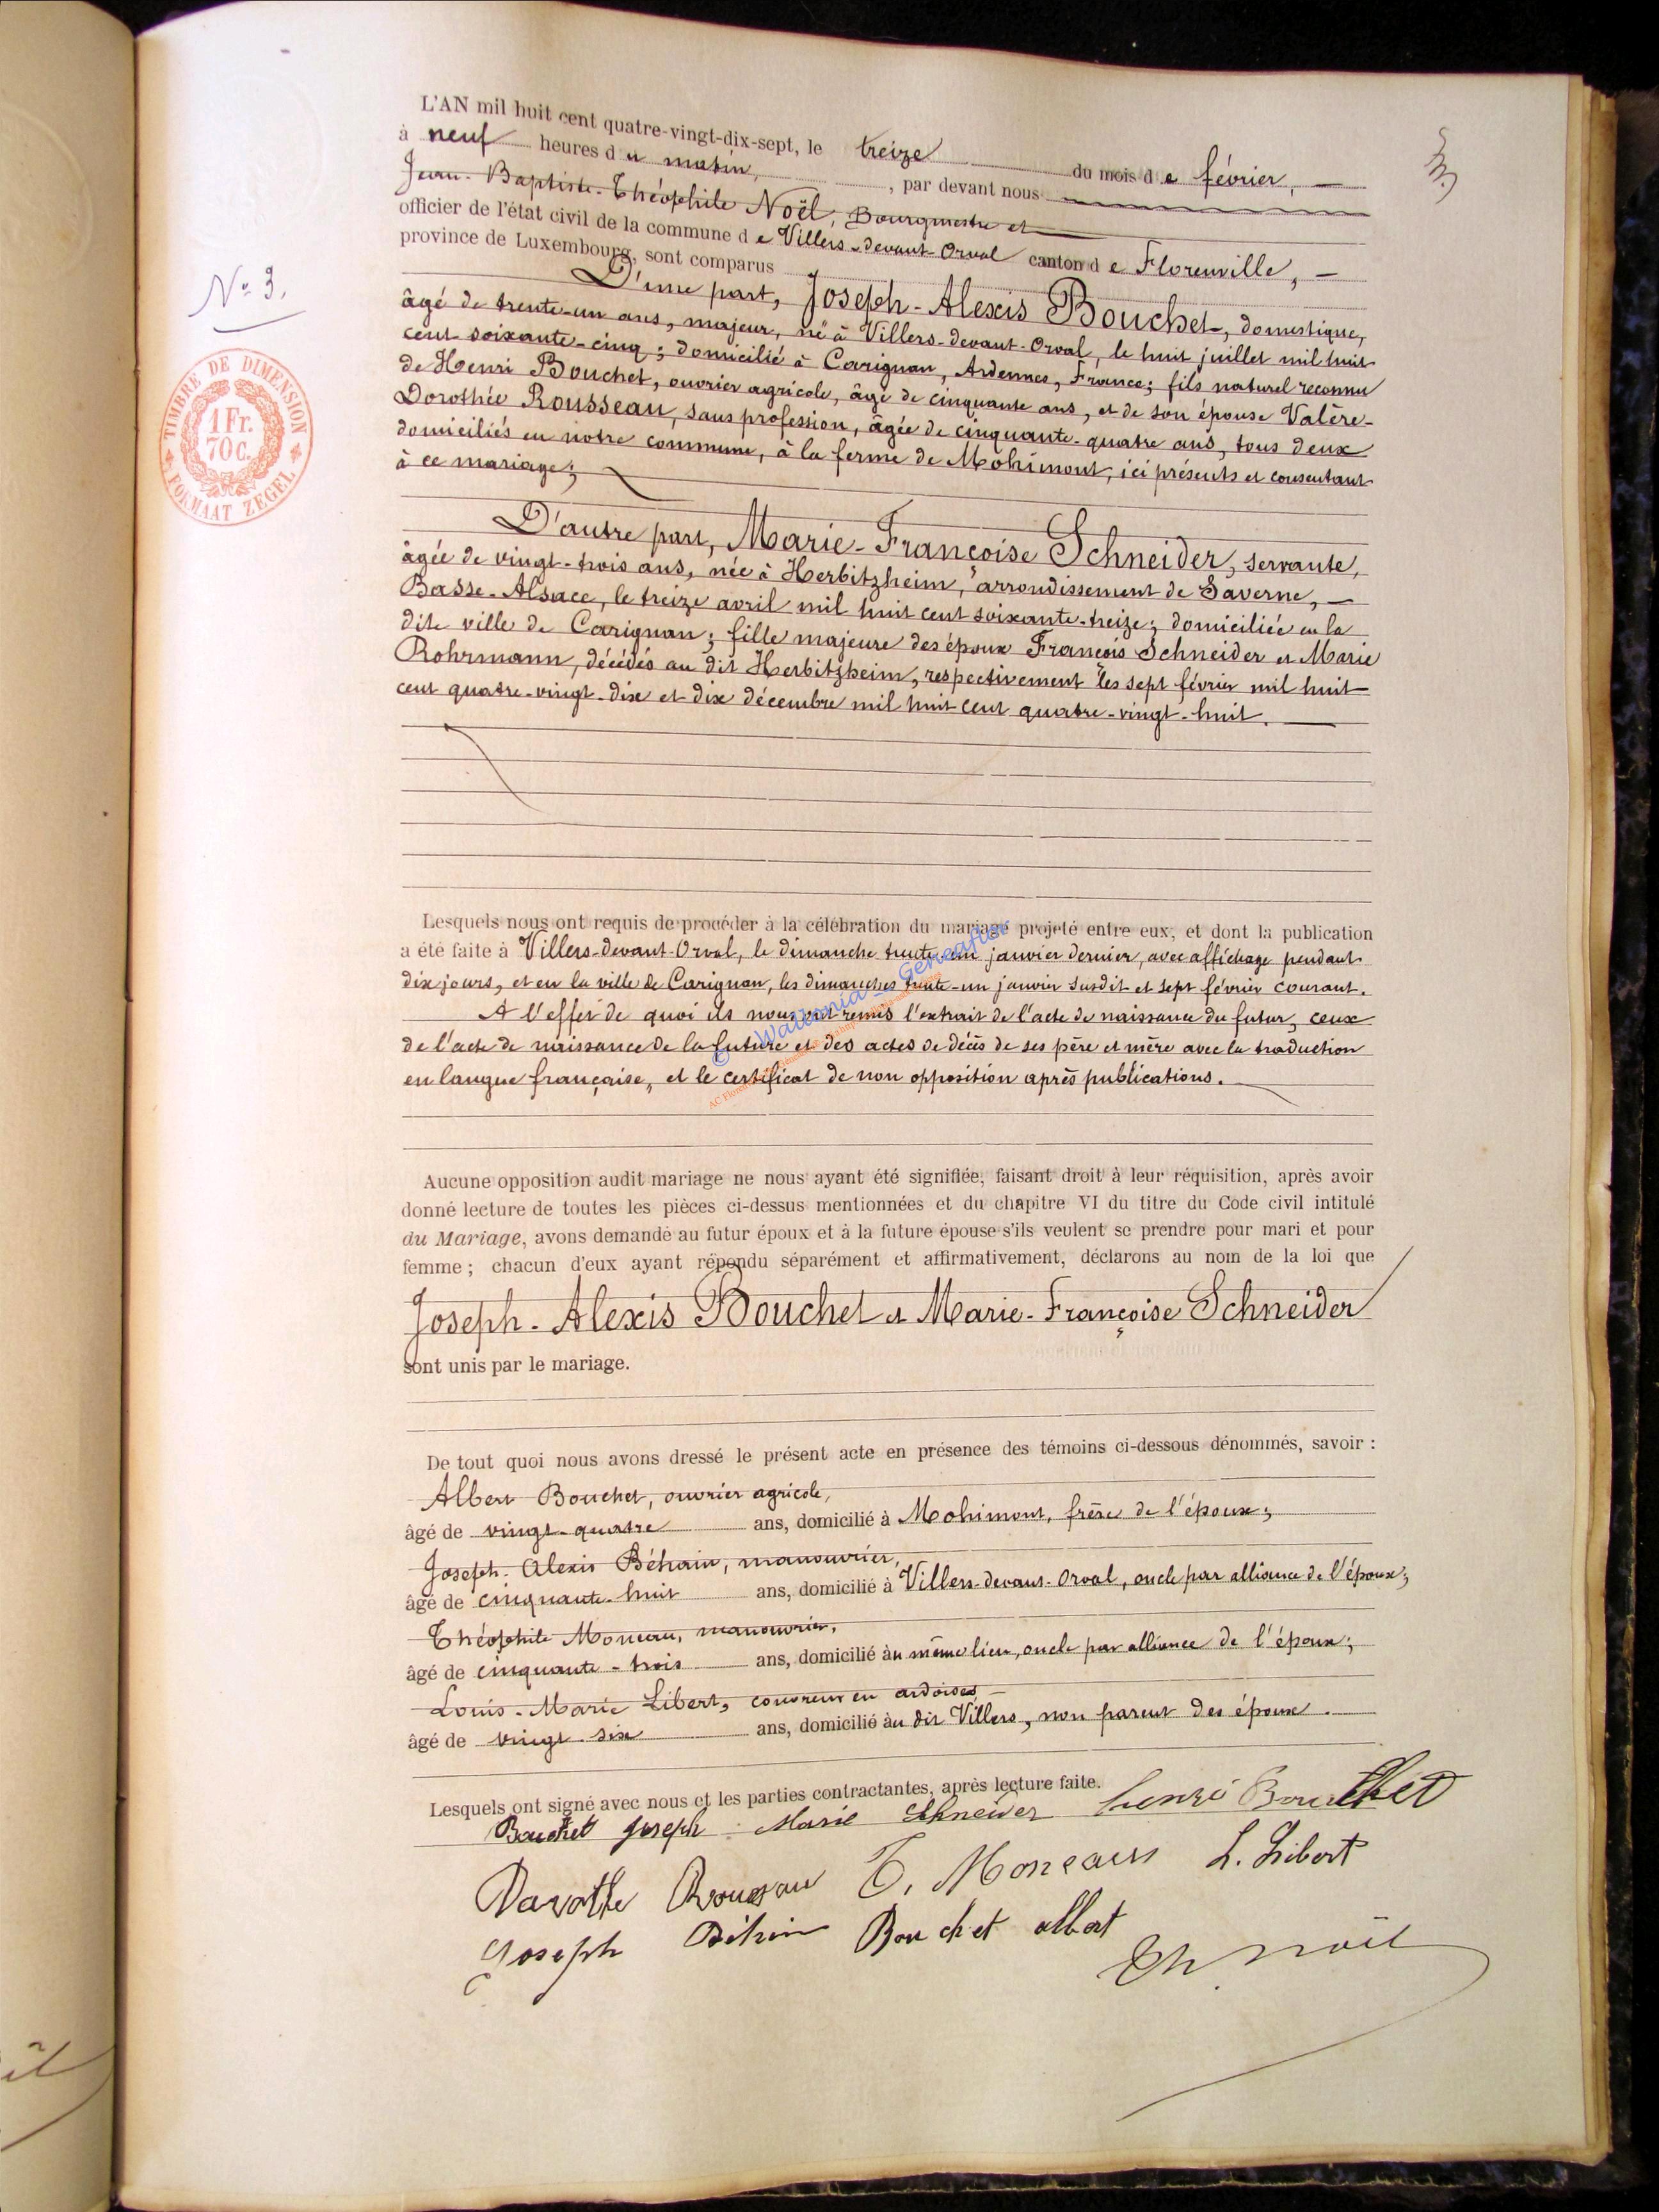 L'AN mil huit cent quatre-vingt-dix-sept, le treize du mois de février, —
à neuf heures du matin, , par devant nous
Jean-Baptiste-Théophile Noël, Bourgmestre et
officier de l'état civil de la commune de Villers-devant-Orval canton de Florenville, —
province de Luxembourg, sont comparus
D'une part, Joseph-Alexis Bouchet, domestique,
âgé de trente-un ans, majeur, né à Villers-devant-Orval, le huit juillet mil huit
cent soixante-cinq; domicilié à Carignan, Ardennes, France; fils naturel reconnu
de Henri Bouchet, ouvrier agricole, âgé de cinquante ans, et de son épouse Valère-
Dorothée Rousseau, sans profession, âgée de cinquante-quatre ans, tous deux
domiciliés en notre commune, à la ferme de Mohimont, ici présents et consentant
à ce mariage;
N° 3.
TIMBRE DE DIMENSION
1 Fr.
70 C.
FORMAAT ZEGEL
D'autre part, Marie-Françoise Schneider, servante,
âgée de vingt-trois ans, née à Herbitzheim, arrondissement de Saverne, —
Basse-Alsace, le treize avril mil huit cent soixante-treize; domiciliée en la
dite ville de Carignan; fille majeure des époux François Schneider et Marie
Rohrmann, décédés au dit Herbitzheim, respectivement les sept février mil huit
cent quatre-vingt-dix et dix décembre mil huit cent quatre-vingt-huit.
Lesquels nous ont requis de procéder à la célébration du mariage projeté entre eux, et dont la publication
a été faite à Villers-devant-Orval, le dimanche trente-un janvier dernier, avec affichage pendant
dix jours, et en la ville de Carignan, les dimanches trente-un janvier susdit et sept février courant.
A l'effet de quoi ils nous ont remis l'extrait de l'acte de naissance du futur, ceux
de l'acte de naissance de la future et des actes de décès de ses père et mère avec la traduction
en langue française, et le certificat de non opposition après publications.
© Wallonia - Geneafior
Aucune opposition audit mariage ne nous ayant été signifiée, faisant droit à leur réquisition, après avoir
donné lecture de toutes les pièces ci-dessus mentionnées et du chapitre VI du titre du Code civil intitulé
du Mariage, avons demandé au futur époux et à la future épouse s'ils veulent se prendre pour mari et pour
femme ; chacun d'eux ayant répondu séparément et affirmativement, déclarons au nom de la loi que
Joseph-Alexis Bouchet et Marie-Françoise Schneider
sont unis par le mariage.
De tout quoi nous avons dressé le présent acte en présence des témoins ci-dessous dénommés, savoir :
Albert Bouchet, ouvrier agricole,
âgé de vingt-quatre ans, domicilié à Mohimont, frère de l'époux;
Joseph-Alexis Béhain, manouvrier,
âgé de cinquante-huit ans, domicilié à Villers-devant-Orval, oncle par alliance de l'époux;
Théophile Moneau, manouvrier,
âgé de cinquante-trois ans, domicilié au même lieu, oncle par alliance de l'époux;
Louis-Marie Libert, couvreur en ardoises —
âgé de vingt-six ans, domicilié au dit Villers, non parent des époux.
Lesquels ont signé avec nous et les parties contractantes, après lecture faite.
Bouchet Joseph Marie Schneider henri Bouchet
Darothe Rousau T. Moneau L. Libert
Joseph Bouchet albert
Th Noël